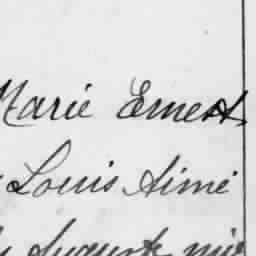 Marie Ernest
Louis Aimé
Auguste